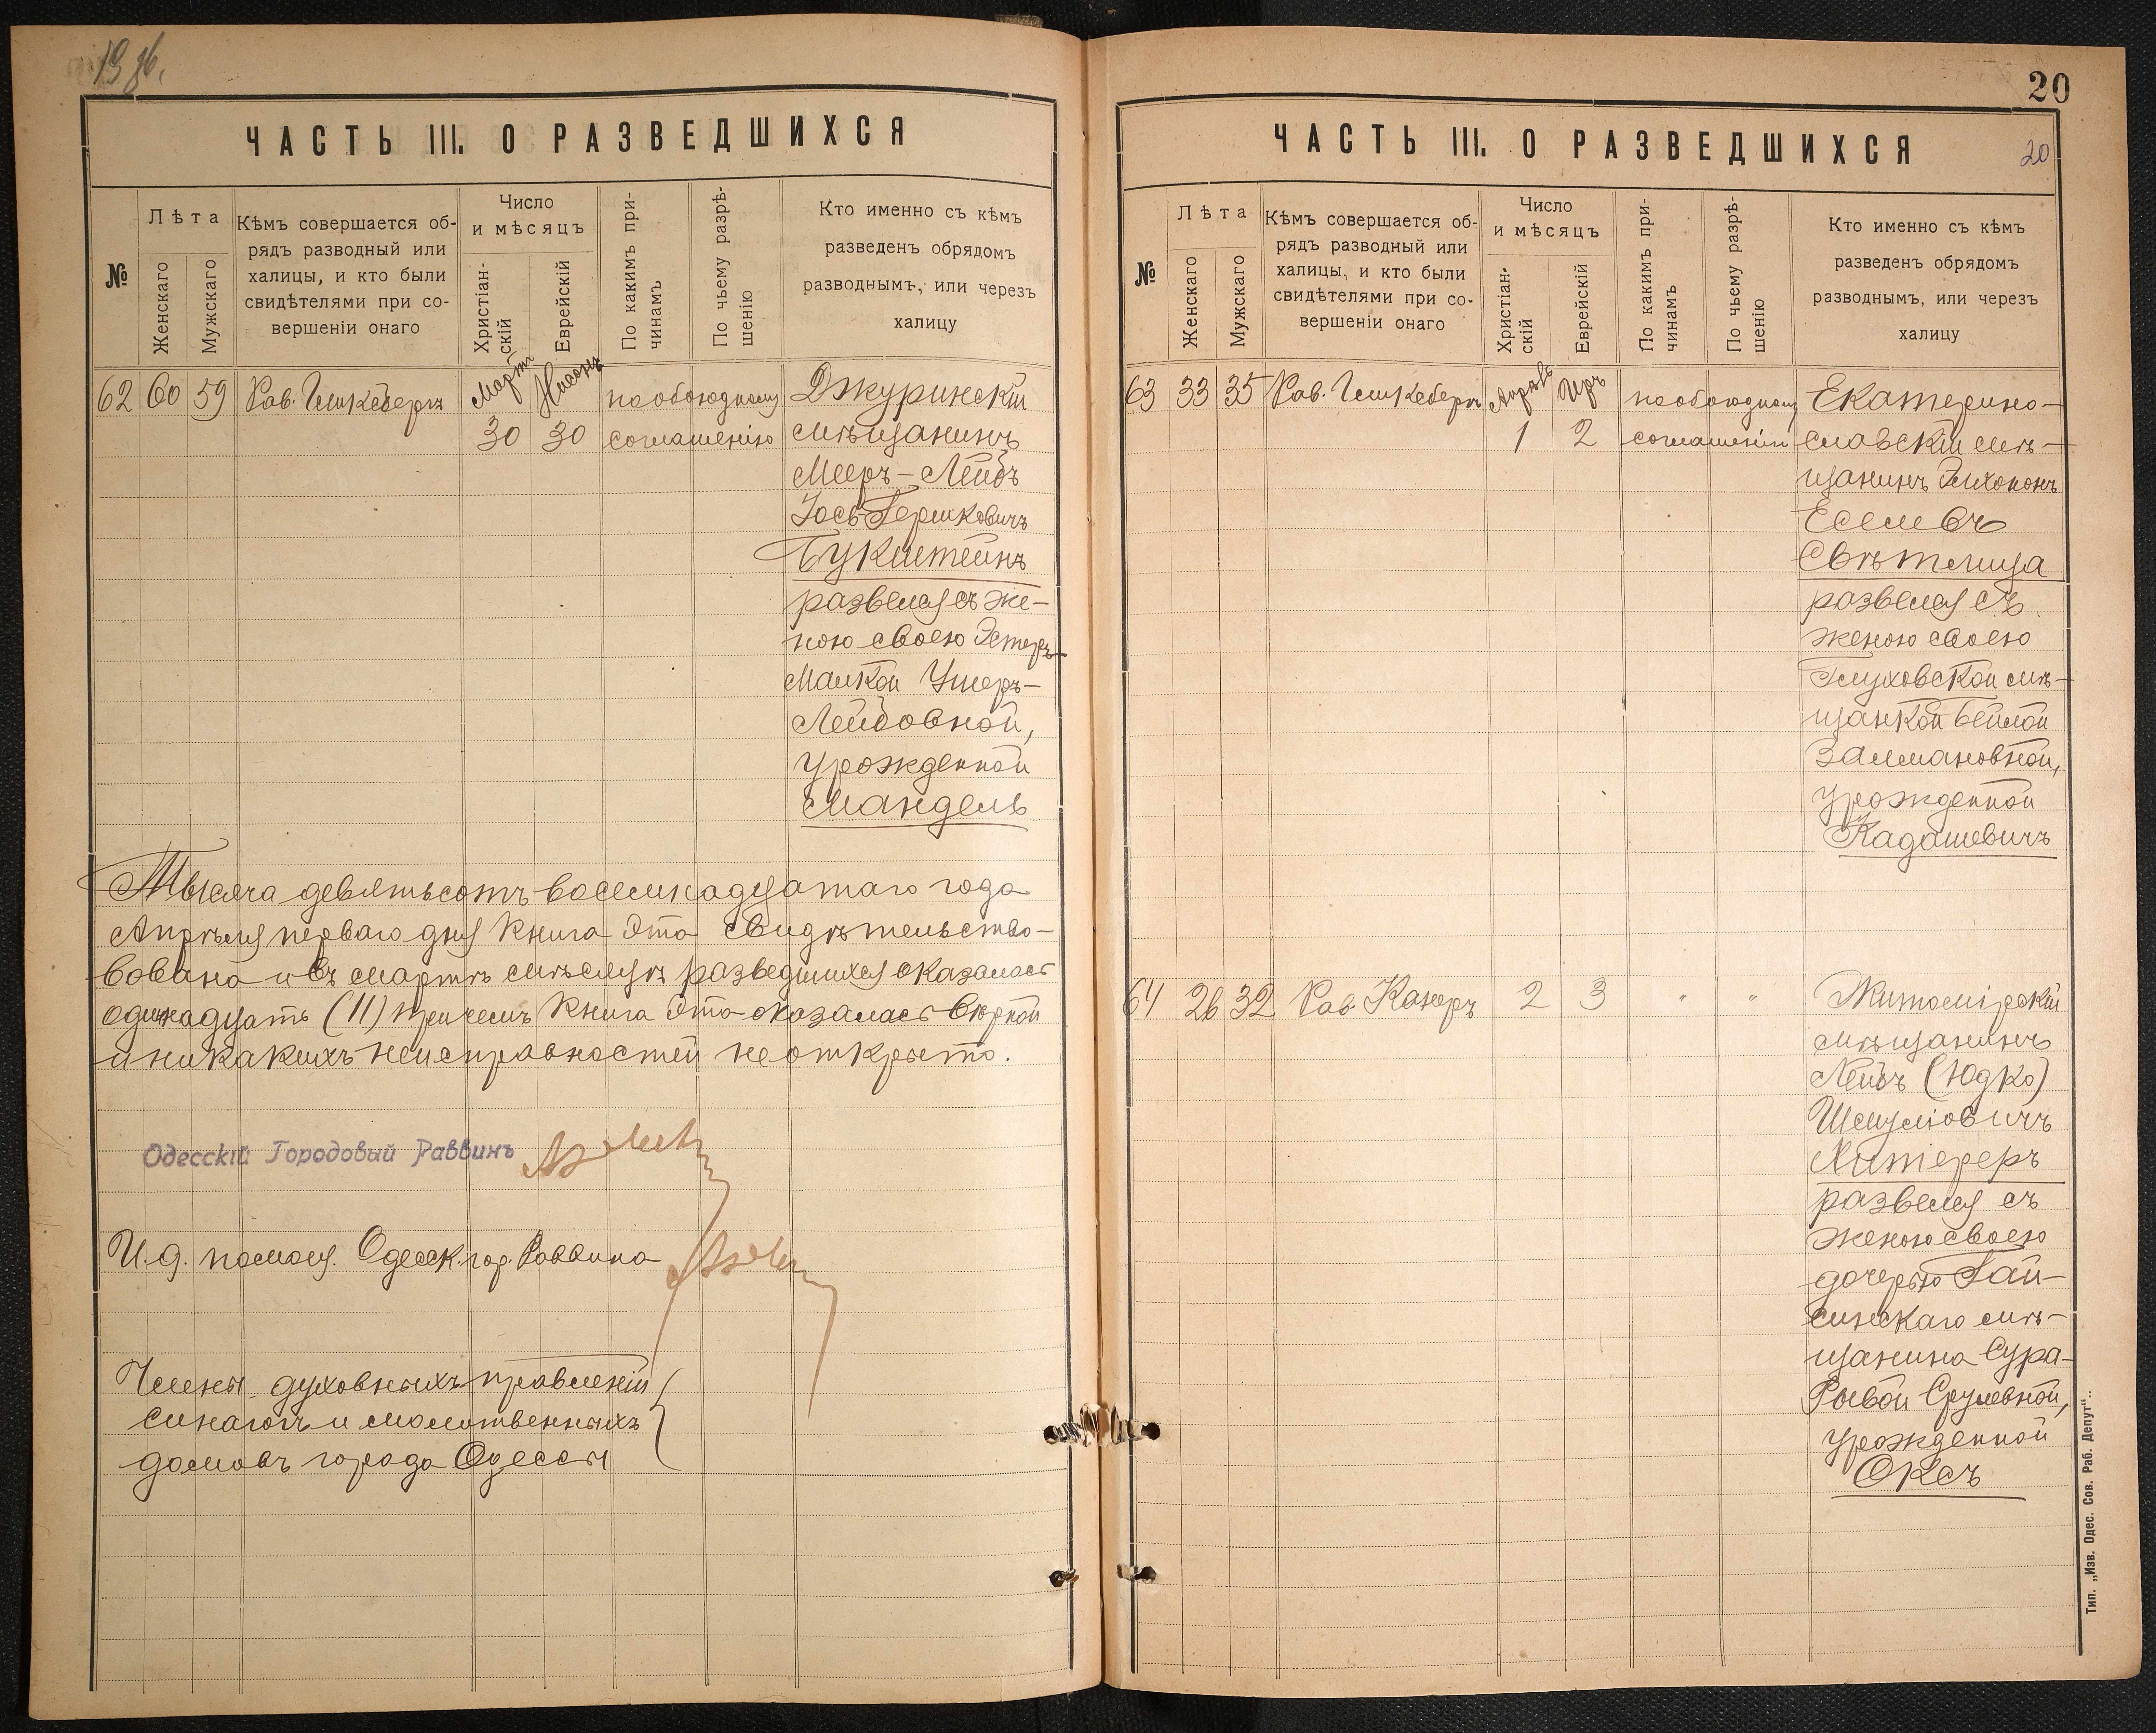 19 об.
ЧАСТЬ III. О РАЗВЕДШИХСЯ
№
Лѣта
Женскаго
Мужскаго
Кѣмъ совершается об-
рядъ разводный или
халицы, и кто были
свидѣтелями при со-
вершеніи онаго
Число
и мѣсяцъ
Христіан-
скій
Еврейскій
По какимъ при-
чинамъ
По чьему разрѣ-
шенію
Кто именно съ кѣмъ
разведенъ обрядомъ
разводнымъ, или черезъ
халицу
62 60 59 Рав. Гликсбергъ Мартъ Нисонъ по обоюдному Джуринскій
30 30 соглашенію мѣщанинъ
Мееръ-Лейбъ
Іось-Гершковичъ
Букштейнъ
развелся съ же-
ною своею Эстеръ-
Малкой Ушеръ-
Лейбовной,
урожденной
Мандель
Тысяча девятьсотъ восемнадцатаго года
Апрѣля перваго дня книга эта свидѣтельство-
вована и въ мартѣ мѣсяцѣ разведшихся оказалось
одинадцать (11) причемъ книга эта оказалась вѣрной
и никакихъ неисправностей не открыто.
Одесскій Городовый Раввинъ
И.д. помощ. Одесск. гор. Раввина
Члены духовныхъ правленій
синагогъ и молитвенныхъ
домовъ города Одессы
20
20
ЧАСТЬ III. О РАЗВЕДШИХСЯ
№
Лѣта
Женскаго
Мужскаго
Кѣмъ совершается об-
рядъ разводный или
халицы, и кто были
свидѣтелями при со-
вершеніи онаго
Число
и мѣсяцъ
Христіан-
скій
Еврейскій
По какимъ при-
чинамъ
По чьему разрѣ-
шенію
Кто именно съ кѣмъ
разведенъ обрядомъ
разводнымъ, или черезъ
халицу
63 33 35 Рав. Гликсбергъ Апрѣль Іиръ по обоюдному Екатерино-
1 2 соглашенію славскій мѣ-
щанинъ Элихононъ
Евсеевъ
Свѣтлица
развелся съ
женою своею
Глуховской мѣ-
щанкой Бейлой
Залмановной,
урожденной
Кадашевичъ
64 26 32 Рав. Канеръ 2 3 " " Житомірскій
мѣщанинъ
Лейбъ (Юдко)
Шмуліовичъ
Хитереръ
развелся съ
женою своею
дочерью Гай-
синскаго мѣ-
щанина Сура-
Рывой Срулевной,
урожденной
Оксъ
Тип. „Изв. Одес. Сов. Раб. Депут“.